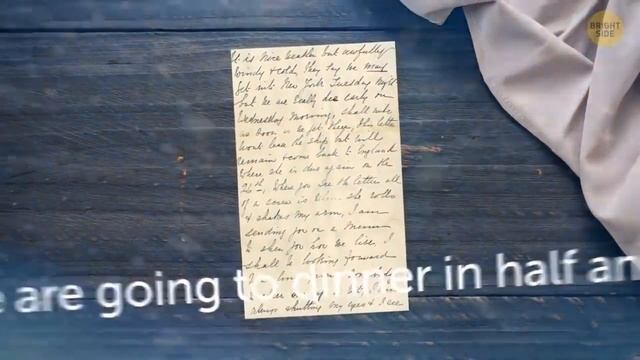 BRIGHT
SIDE
It is nice weather but awfully
windy & cold, they say we may
get into New York Tuesday night
but we are really due early on
Wednesday morning, shall write
as soon as we get there, this letter
wont leave the ship but will
remain & come back to England
where she is due again on the
26th, Where you see the letter all
of a screw is when she rolls
& shakes my arm, I am
sending you on a menu
to show you how we live, I
shall be looking forward
always shutting my eyes & I see
e are going to dinner in half an